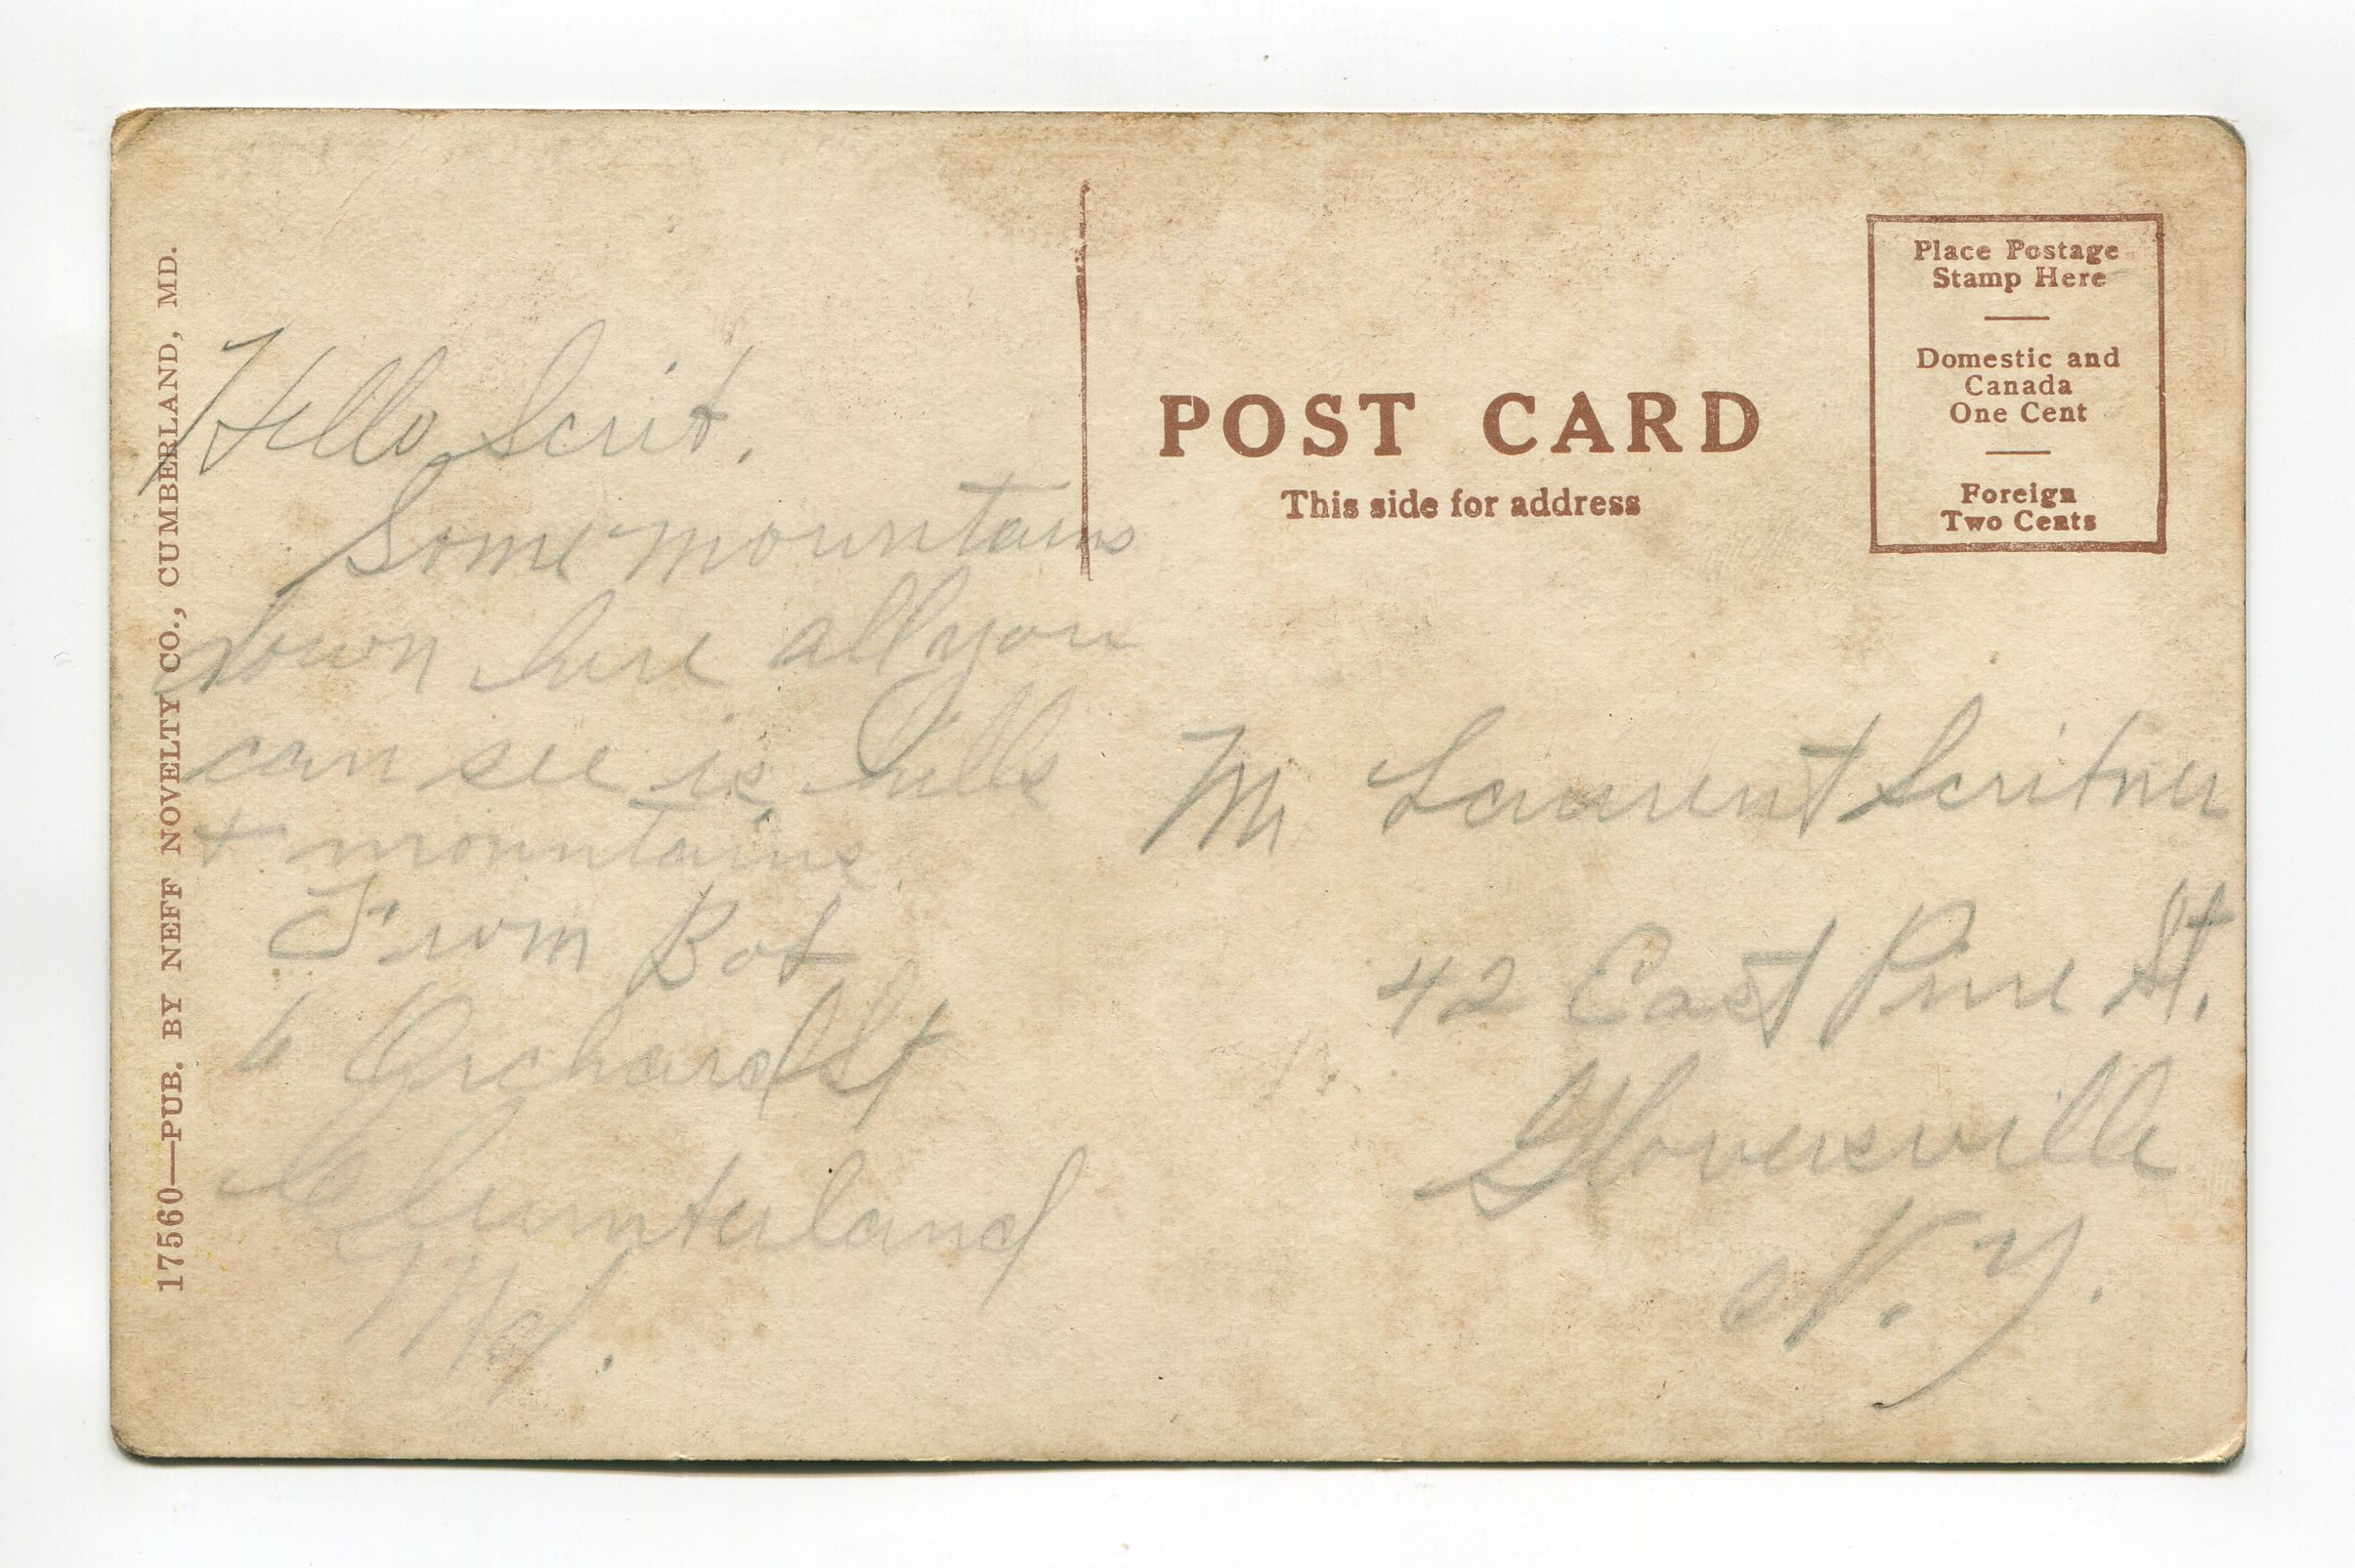 17560—PUB. BY NEFF NOVELTY CO., CUMBERLAND, MD.
Hello Scrit.
Some mountains
down here all you
can see is hills
+ mountains.
From Bob
6 Orchard St
Cumberland
Md.
POST CARD
This side for address
Place Postage
Stamp Here
Domestic and
Canada
One Cent
Foreign
Two Cents
Mr Laurent Scribner
42 East Pine St.
Gloversville
N.Y.